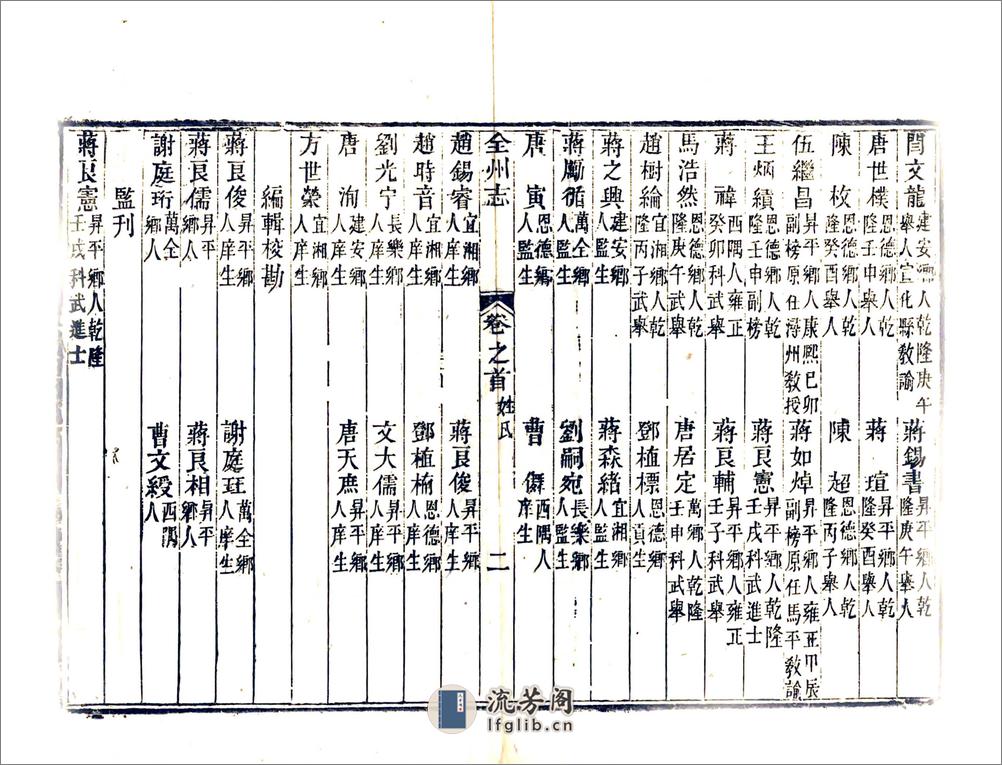 閆文龍建安鄉人乾隆庚午舉人宣化縣敎諭　蔣錫書昇平鄉人乾隆庚午舉人
唐世樸恩德鄉人乾隆壬申舉人　蔣瑄昇平鄉人乾隆癸酉舉人
陳枚恩德鄉人乾隆癸酉舉人　陳超恩德鄉人乾隆丙子舉人
伍繼昌昇平鄉人康熙己卯副榜原任潯州敎授　蔣如焯昇平鄉人雍正甲辰副榜原任馬平敎諭
王炳續恩德鄉人乾隆壬申副榜　蔣良憲昇平鄉人乾隆壬戌科武進士
蔣禕西隅人雍正癸卯科武舉　蔣良輔昇平鄉人雍正壬子科武舉
馬浩然恩德鄉人乾隆庚午武舉　唐居定萬鄉人乾隆壬申科武舉
趙樹綸宜湘鄉人乾隆丙子武舉　鄧植標恩德鄉人貢生
蔣之興建安鄉人監生　蔣森緒宜湘鄉人監生
蔣勵循萬全鄉人監生　劉嗣宛長樂鄉人監生
唐寅恩德鄉人監生　曹僎西隅人庠生
全州志　卷之首　姓氏　二
趙錫睿宜湘鄉人庠生　蔣良俊昇平鄉人庠生
趙時音宜湘鄉人庠生　鄧植楠恩德鄉人庠生
劉光宁長樂鄉人庠生　文大儒昇平鄉人庠生
唐洵建安鄉人庠生　唐天庶昇平鄉人庠生
方世榮宜湘鄉人庠生
編輯校勘
蔣良俊昇平鄉人庠生　謝庭玨萬全鄉人庠生
蔣良儒昇平鄉人　蔣良相昇平鄉人
謝庭珩萬全鄉人　曹文綬西隅人
監刊
蔣良憲昇平鄉人乾隆壬戌科武進士
流芳阁
lfglib.cn